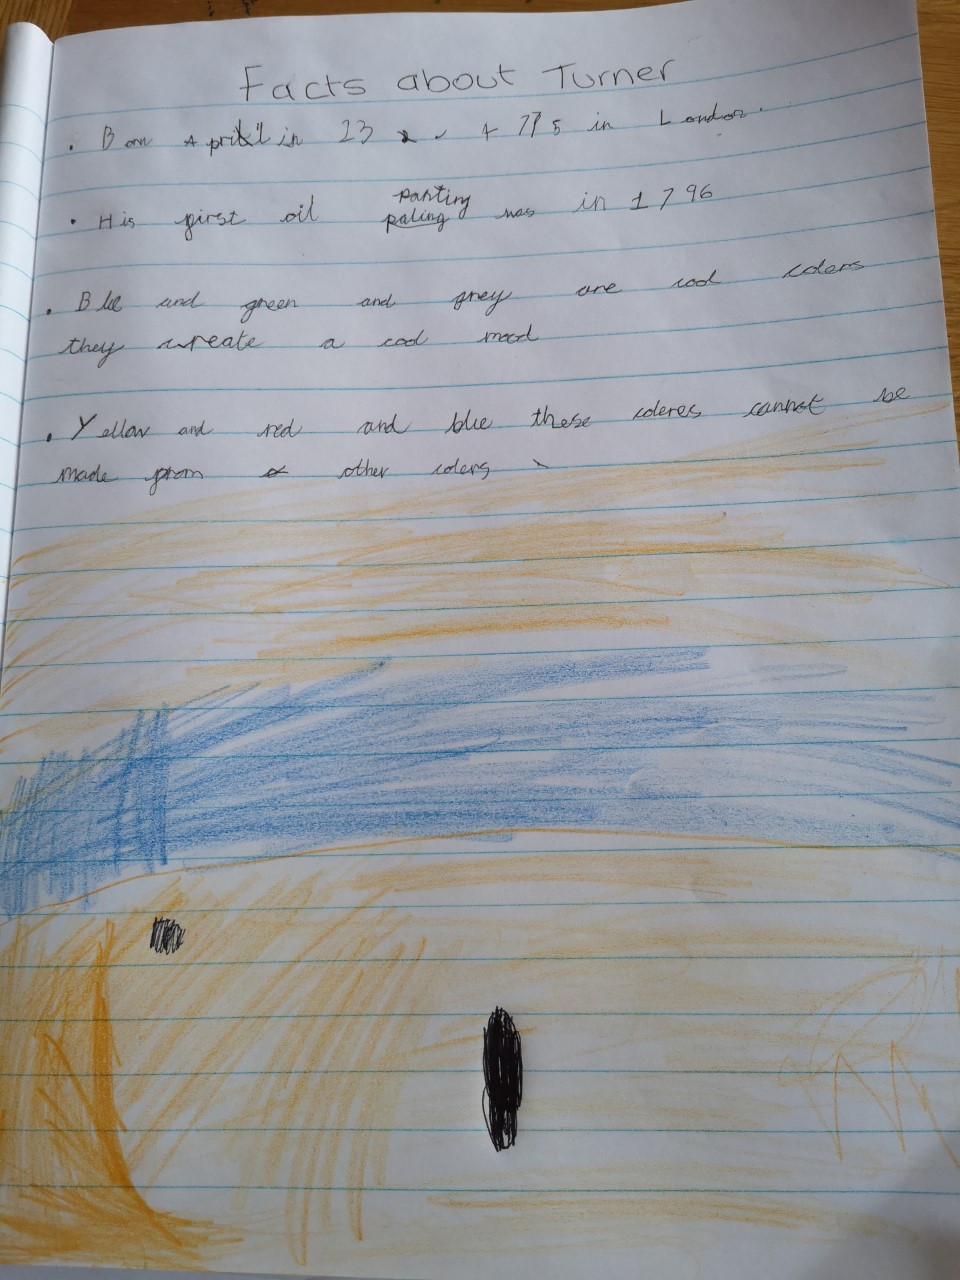 Facts about Turner
• Born April in 23 1775 in London.
• His first oil panting
paling was in 1796
• Blue and green and grey are cool colers
they create a cool mood
• Yellow and red and blue these coleres cannot be
made from other colers